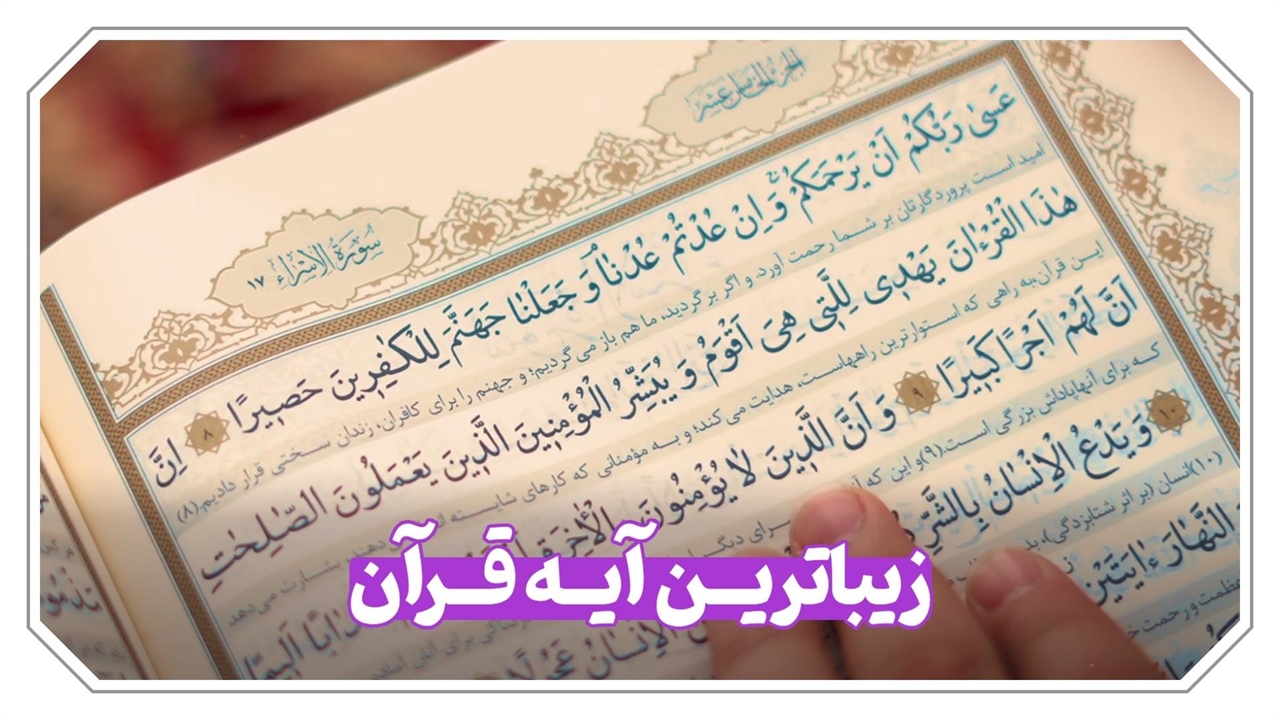 الجزء الخامس عشر
سورة الاسراء ١٧
عَسىٰ رَبُّكُمْ اَنْ يَرْحَمَكُمْ وَ اِنْ عُدْتُمْ عُدْنا وَ جَعَلْنا جَهَنَّمَ لِلْكٰفِرينَ حَصيرًا ٨ اِنَّ
امید است پروردگارتان بر شما رحمت آورد، و اگر برگردید، ما هم باز می گردیم؛ و جهنم را برای کافران، زندان سختی قرار دادیم.(٨)
هٰذَا الْقُرْءانَ يَهْدى لِلَّتى هِىَ اَقْوَمُ وَ يُبَشِّرُ الْمُؤْمِنينَ الَّذينَ يَعْمَلُونَ الصّٰلِحٰتِ
این قرآن، به راهی که استوارترین راههاست، هدایت می کند؛ و به مؤمنانی که کارهای شایسته انجام می دهند، بشارت می دهد
اَنَّ لَهُمْ اَجْرًا كَبيرًا ٩ وَ اَنَّ الَّذينَ لا يُؤْمِنُونَ
که برای آنها پاداش بزرگی است.(٩) و این که
١٠ وَ يَدْعُ الْاِنْسانُ بِالشَّرِّ
(١٠) انسان (بر اثر شتابزدگی)، بد
الْاِنْسانُ عَجُولًا
النَّهارَ ءايَتَيْنِ
زیباترین آیه قرآن